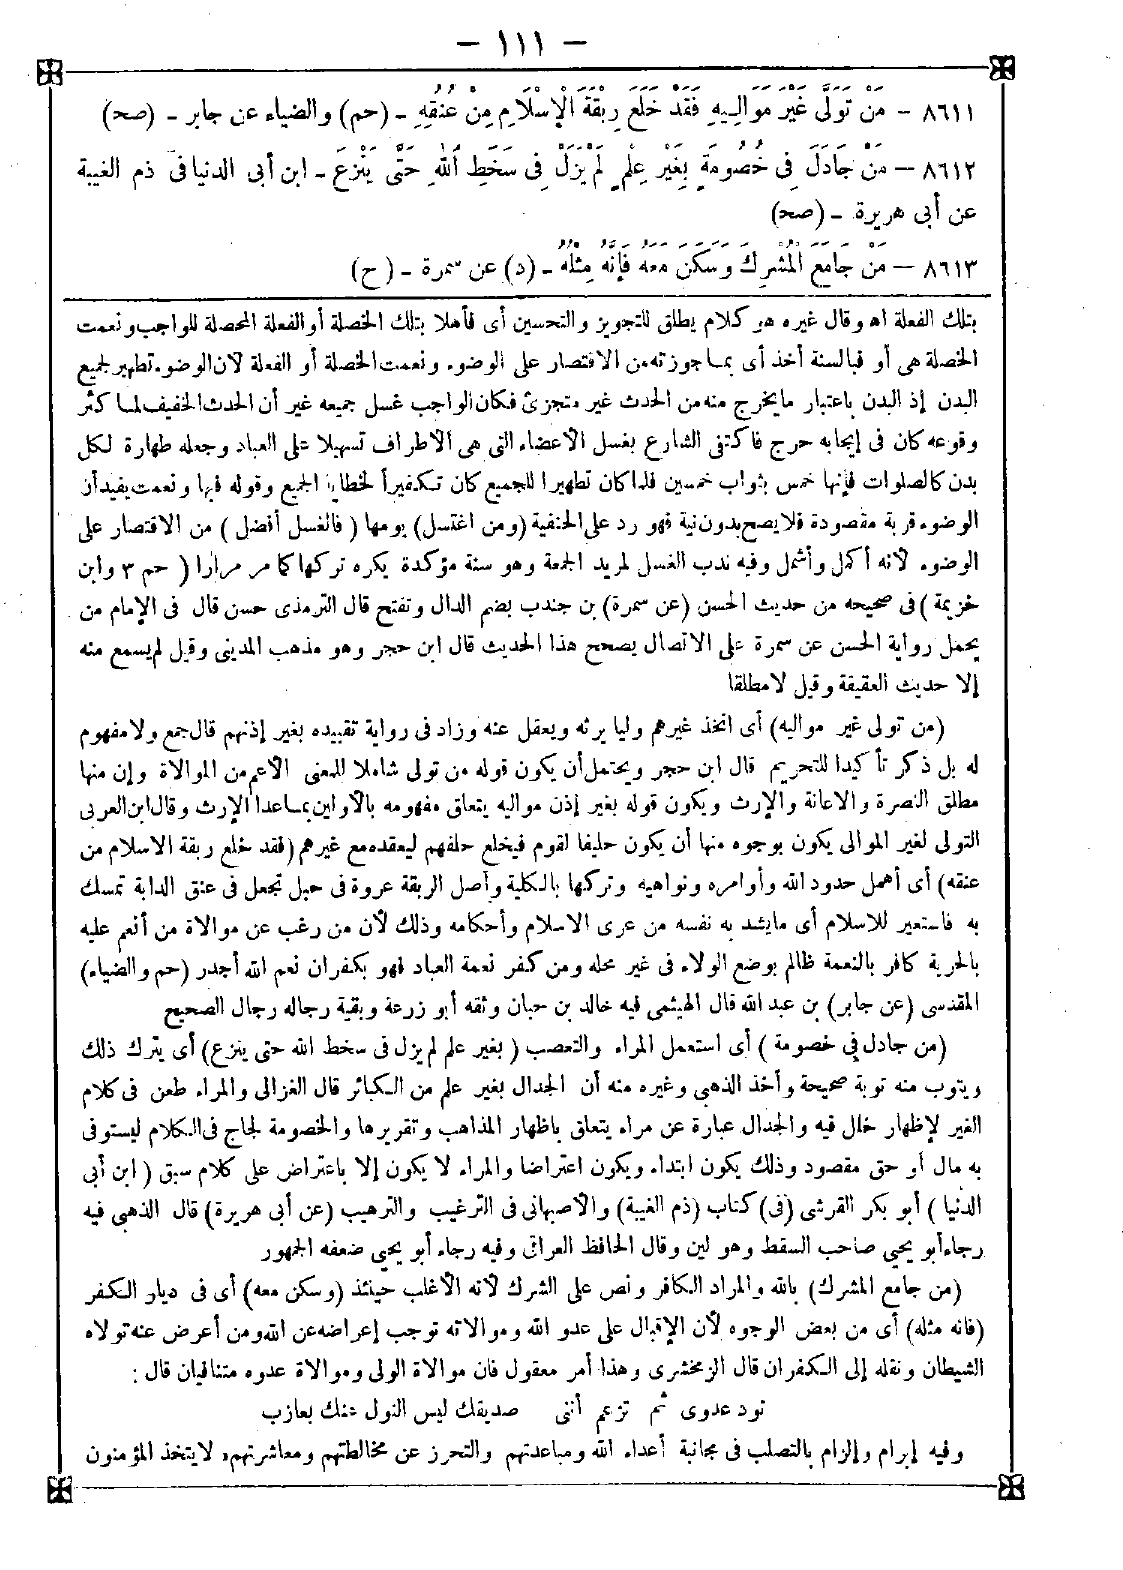 - ١١١ -
٨٦١١ - مَنْ تَوَلَّى غَيْرَ مَوَالِيهِ فَقَدْ خَلَعَ رِبْقَةَ الْإِسْلَامِ مِنْ عُنُقِهِ - (حم) والضياء عن جابر - (صح)
٨٦١٢ - مَنْ جَادَلَ فِى خُصُومَةٍ بِغَيْرِ عِلْمٍ لَمْ يَزَلْ فِى سَخَطِ اللهِ حَتَّى يَنْزِعَ - ابن أبى الدنيا فى ذم الغيبة
عن أبى هريرة - (صح)
٨٦١٣ - مَنْ جَامَعَ الْمُشْرِكَ وَسَكَنَ مَعَهُ فَإِنَّهُ مِثْلُهُ - (د) عن سمرة - (ح)
بتلك الفعلة اه وقال غيره هو كلام يطلق للتجويز والتحسين أى فأهلا بتلك الخصلة أو الفعلة المحصلة للواجب ونعمت
الخصلة هى أو فبالسنة أخذ أى بما جوزته من الاقتصار على الوضوء ونعمت الخصلة أو الفعلة لان الوضوء تطهير لجميع
البدن إذ البدن باعتبار ما يخرج منه من الحدث غير متجزئ فكان الواجب غسل جميعه غير أن الحدث الخفيف لما كثر
وقوعه كان فى إيجابه حرج فاكتفى الشارع بغسل الأعضاء التى هى الأطراف تسهيلا على العباد وجعله طهارة لكل
بدن كالصلوات فإنها خمس بثواب خمسين فلما كان تطهيرا للجميع كان تكفيراً لخطايا الجميع وقوله فبها ونعمت يفيد أن
الوضوء قربة مقصودة فلا يصح بدون نية فهو رد على الحنفية (ومن اغتسل) يومها (فالغسل أفضل) من الاقتصار على
الوضوء لانه أكمل وأشمل وفيه ندب الغسل لمريد الجمعة وهو سنة مؤكدة يكره تركها كما مر مرارا (حم ٣ وابن
خزيمة) فى صحيحه من حديث الحسن (عن سمرة) بن جندب بضم الدال وتفتح قال الترمذى حسن قال فى الإمام من
يحمل رواية الحسن عن سمرة على الاتصال يصحح هذا الحديث قال ابن حجر وهو مذهب المدينى وقيل لم يسمع منه
إلا حديث العقيقة وقيل لا مطلقا
(من تولى غير مواليه) أى اتخذ غيرهم وليا يرثه ويعقل عنه وزاد فى رواية تقييده بغير إذنهم قال جمع ولا مفهوم
له بل ذكر تأكيدا للتحريم قال ابن حجر ويحتمل أن يكون قوله من تولى شاملا للمعنى الأعم من الموالاة وإن منها
مطلق النصرة والاعانة والإرث ويكون قوله بغير إذن مواليه يتعلق مفهومه بالأولين بما عدا الإرث وقال ابن العربى
التولى لغير الموالى يكون بوجوه منها أن يكون حليفا لقوم فيخلع حلفهم ليعقده مع غيرهم (فقد خلع ربقة الاسلام من
عنقه) أى أهمل حدود الله وأوامره ونواهيه وتركها بالكلية وأصل الربقة عروة فى حبل تجعل فى عنق الدابة تمسك
به فاستعير للاسلام أى ما يشد به نفسه من عرى الاسلام وأحكامه وذلك لأن من رغب عن موالاة من أنعم عليه
بالحرية كافر بالنعمة ظالم بوضع الولاء فى غير محله ومن كفر نعمة العباد فهو بكفران نعم الله أجدر (حم والضياء)
المقدسى (عن جابر) بن عبد الله قال الهيثمى فيه خالد بن حبان وثقه أبو زرعة وبقية رجاله رجال الصحيح
(من جادل فى خصومة) أى استعمل المراء والتعصب (بغير علم لم يزل فى سخط الله حتى ينزع) أى يترك ذلك
ويتوب منه توبة صحيحة وأخذ الذهبى وغيره منه أن الجدال بغير علم من الكبائر قال الغزالى والمراء طعن فى كلام
الغير لإظهار خلل فيه والجدال عبارة عن مراء يتعلق باظهار المذاهب وتقريرها والخصومة لجاج فى الكلام ليستوفى
به مال أو حق مقصود وذلك يكون ابتداء ويكون اعتراضا والمراء لا يكون إلا باعتراض على كلام سبق (ابن أبى
الدنيا) أبو بكر القرشى (فى) كتاب (ذم الغيبة) والأصبهانى فى الترغيب والترهيب (عن أبى هريرة) قال الذهبى فيه
رجاء أبو يحيى صاحب السقط وهو لين وقال الحافظ العراقى وفيه رجاء أبو يحيى ضعفه الجمهور
(من جامع المشرك) بالله والمراد الكافر ونص على الشرك لانه الأغلب حينئذ (وسكن معه) أى فى ديار الكفر
(فانه مثله) أى من بعض الوجوه لأن الإقبال على عدو الله وموالاته توجب إعراضه عن الله ومن أعرض عنه تولاه
الشيطان ونقله إلى الكفران قال الزمخشرى وهذا أمر معقول فان موالاة الولى وموالاة عدوه متنافيان قال :
تود عدوى ثم تزعم أننى صديقك ليس النول عنك بعازب
وفيه إبرام وإلزام بالتصلب فى مجانبة أعداء الله ومباعدتهم والتحرز عن مخالطتهم ومعاشرتهم، لا يتخذ المؤمنون